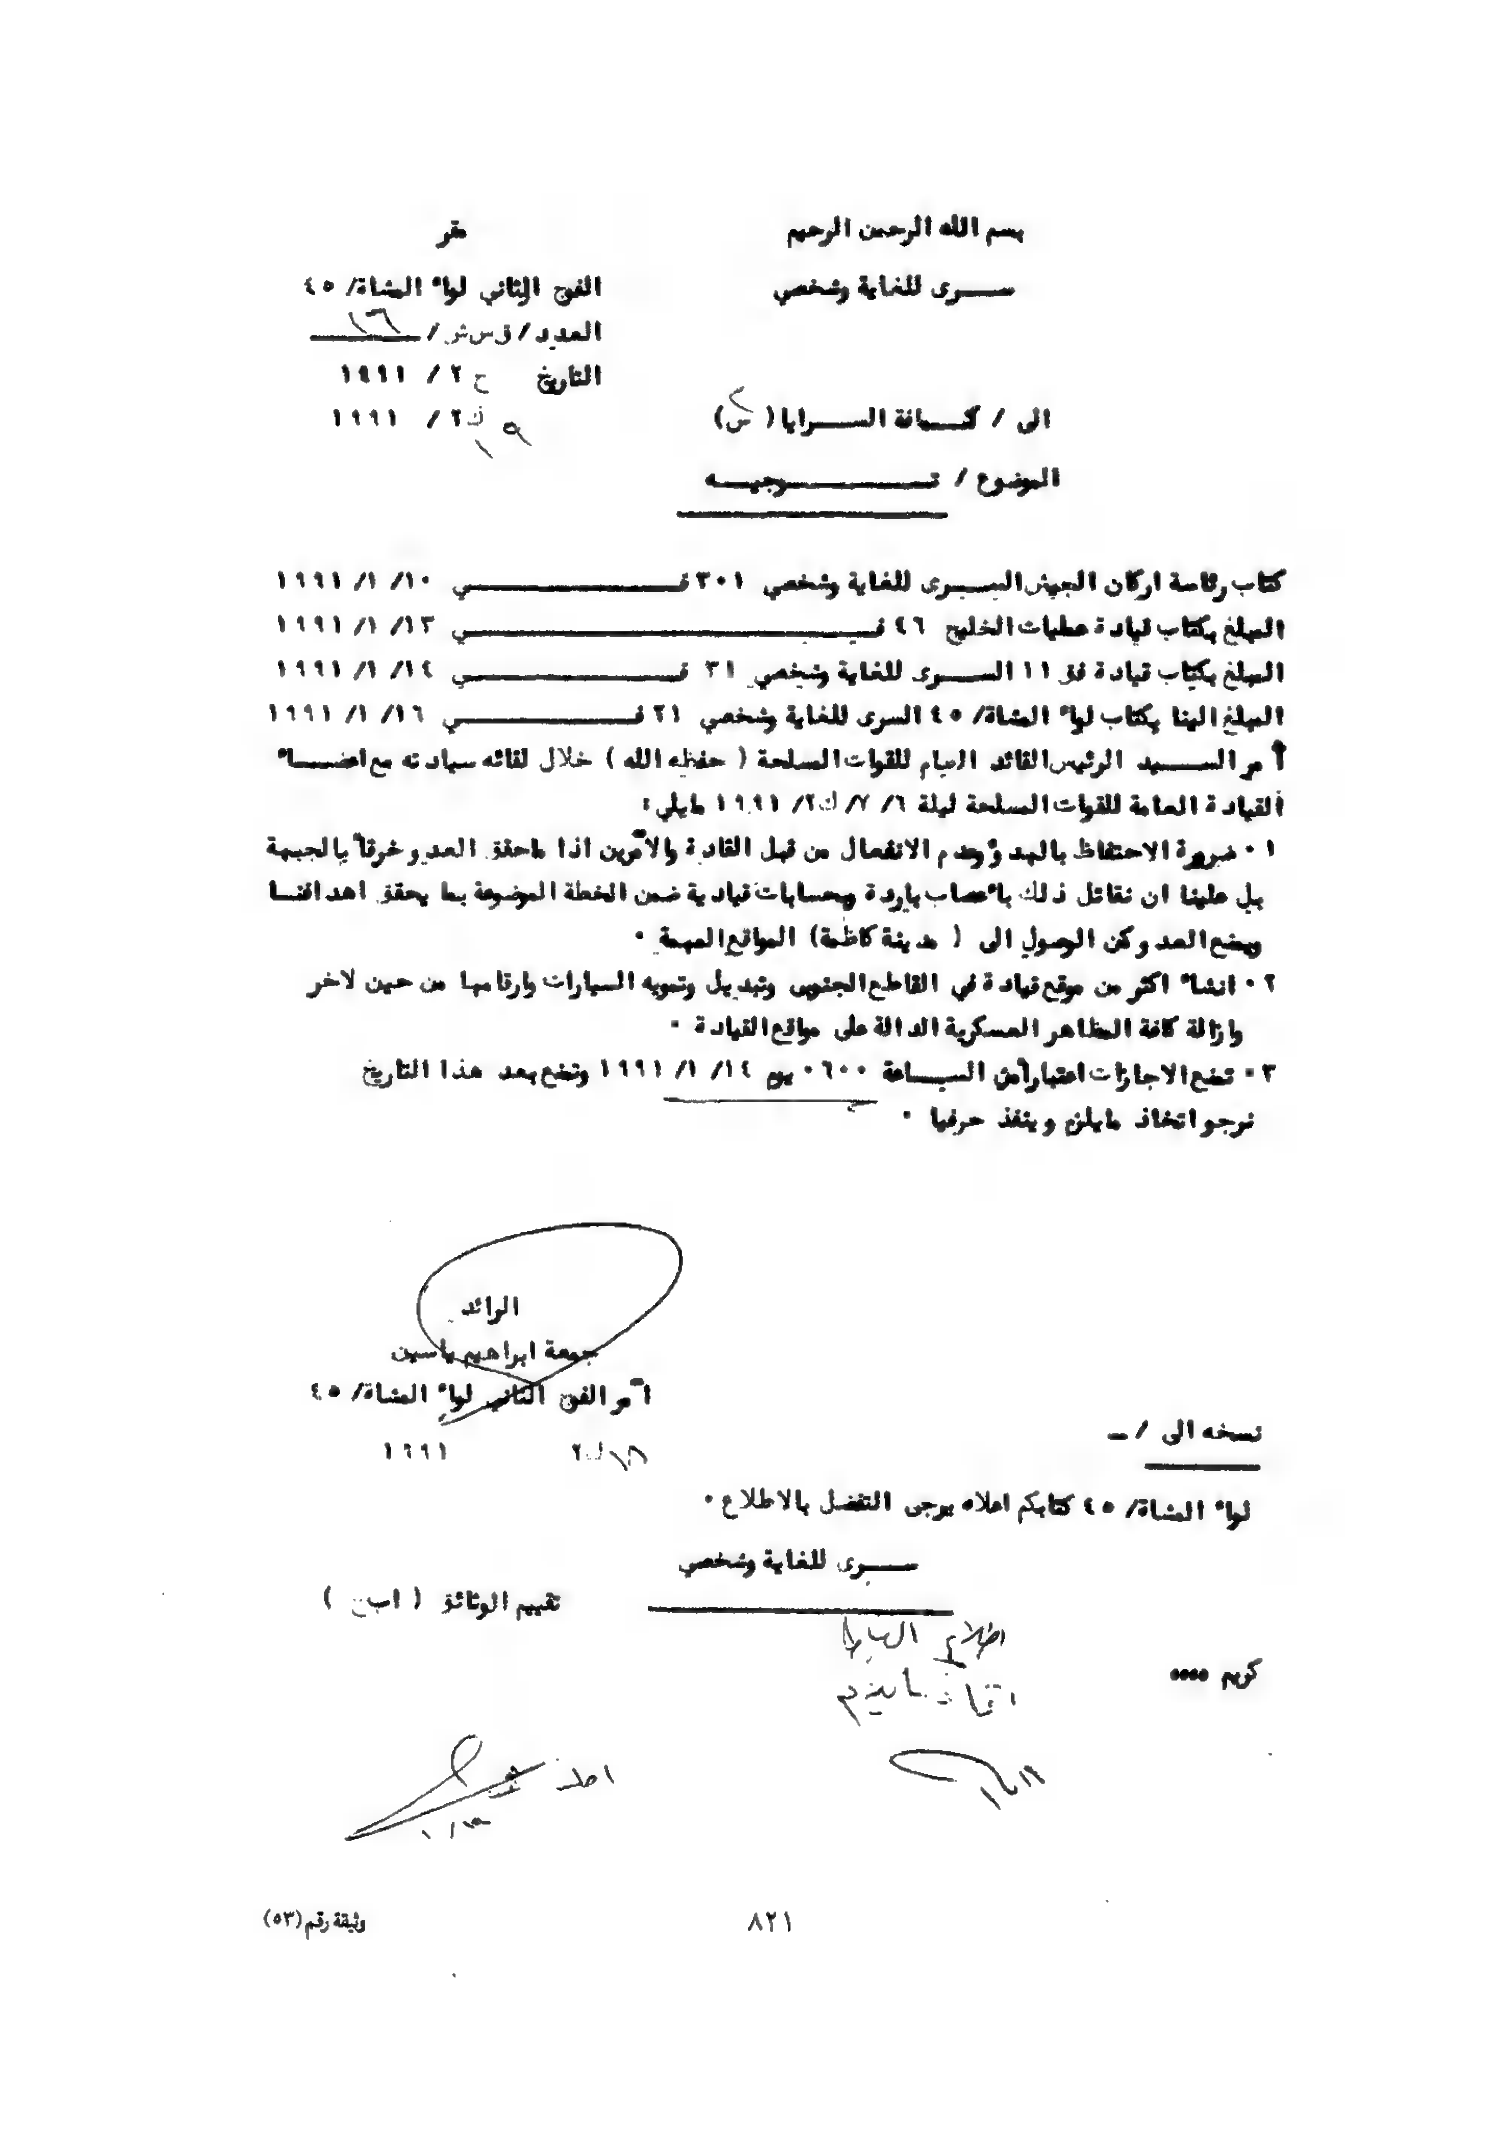 بسم الله الرحمن الرحيم
مقر
سرى للغاية وشخصي
الفوج الثاني لواء المشاة/ ٤٥
العدد/ ق س ش / ١٦
التاريخ ج ٢ / ١٩٩١
ك٢ / ١٩٩١
الى / كافة السرايا ( س )
الموضوع / توجيه
كتاب رئاسة اركان الجيش السرى للغاية وشخصي ٣٠١ في ١٠/ ١/ ١٩٩١
المبلغ بكتاب قيادة عمليات الخليج ٤٦ في ١٣/ ١/ ١٩٩١
المبلغ بكتاب قيادة فق ١١ السرى للغاية وشخصي ٣١ في ١٤/ ١/ ١٩٩١
المبلغ الينا بكتاب لواء المشاة/ ٤٥ السرى للغاية وشخصي ٢١ في ١٦/ ١/ ١٩٩١
أمر السيد الرئيس القائد العام للقوات المسلحة ( حفظه الله ) خلال لقائه سيادته مع اعضاء
القيادة العامة للقوات المسلحة ليلة ٦/ ٧/ ك٢/ ١٩٩١ مايلي:
١٠ ضرورة الاحتفاظ بالهدوء وعدم الانفعال من قبل القادة والآمرين اذا ماحقق العدو خرقاً بالجبهة
بل علينا ان نقاتل ذلك بأعصاب باردة وبحسابات قيادية ضمن الخطة الموضوعة بما يحقق اهدافنا
ويمنع العدو كن الوصول الى ( مدينة كاظمة ) المواقع المهمة ٠
٢٠ انشاء اكثر من موقع قيادة في القاطع الجنوبي وتبديل وتمويه السيارات وارقامها من حين لاخر
وازالة كافة المظاهر العسكرية الدالة على مواقع القيادة ٠
٣٠ تمنع الاجازات اعتباراً من الساعة ٠٦٠٠ يوم ١٤/ ١/ ١٩٩١ وتمنع بعد هذا التاريخ
نرجو اتخاذ مايلزم وينفذ حرفيا ٠
الرائد
جمعة ابراهيم ياسين
آمر الفوج الثاني لواء المشاة/ ٤٥
ك٢ ١٩٩١
نسخه الى / ــ
لواء المشاة/ ٤٥ كتابكم اعلاه يرجى التفضل بالاطلاع ٠
سرى للغاية وشخصي
تقييم الوثائق ( اب ج )
اطلاع
اتخاذ مايلزم
كريم ٥٥٥٥
وثيقة رقم (٥٣)
٨٢١